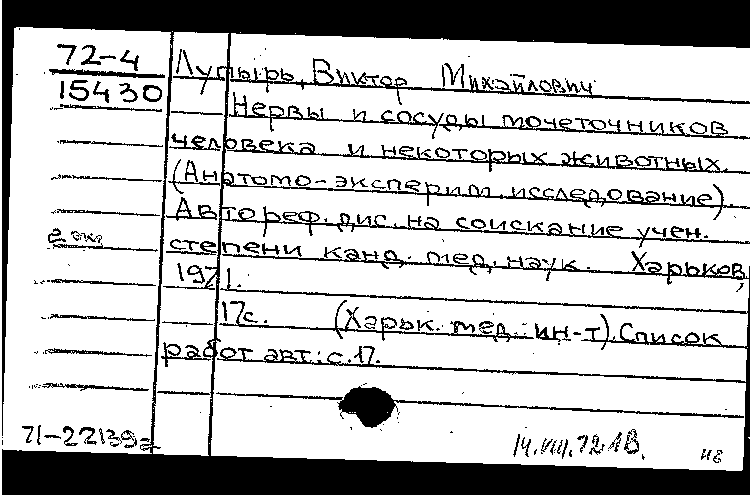 72-4
15430
Лупырь, Виктор Михайлович
Нервы и сосуды мочеточников
человека и некоторых животных.
(Анатомо-эксперим. исследование).
Автореф. дис. на соискание учен.
2 экз
степени канд. мед. наук. Харьков,
1971.
17с. (Харьк. мед. ин-т). Список
работ авт.: с. 17.
71-22139а
14.VIII.72 АВ.
нб